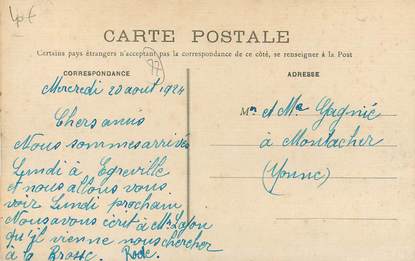 4€
CARTE POSTALE
Certains pays étrangers n'acceptant pas la correspondance de ce côté, se renseigner à la Post
(77)
CORRESPONDANCE
Mercredi 20 aout 1924
Chers amis
Nous sommes arrivés
Lundi à Egreville
et nous allons vous
voir Lundi prochain
Nous avons écrit à Mr Lafon
qu'il vienne nous chercher
à la Brosse. Rode.
ADRESSE
Mr et Mme Gagnié
à Montacher
(Yonne)